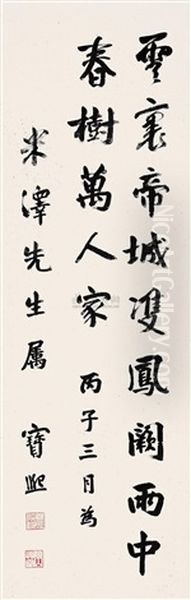 雲裏帝城雙鳳闕雨中
春樹萬人家 丙子三月為
米澤先生属 寶熙